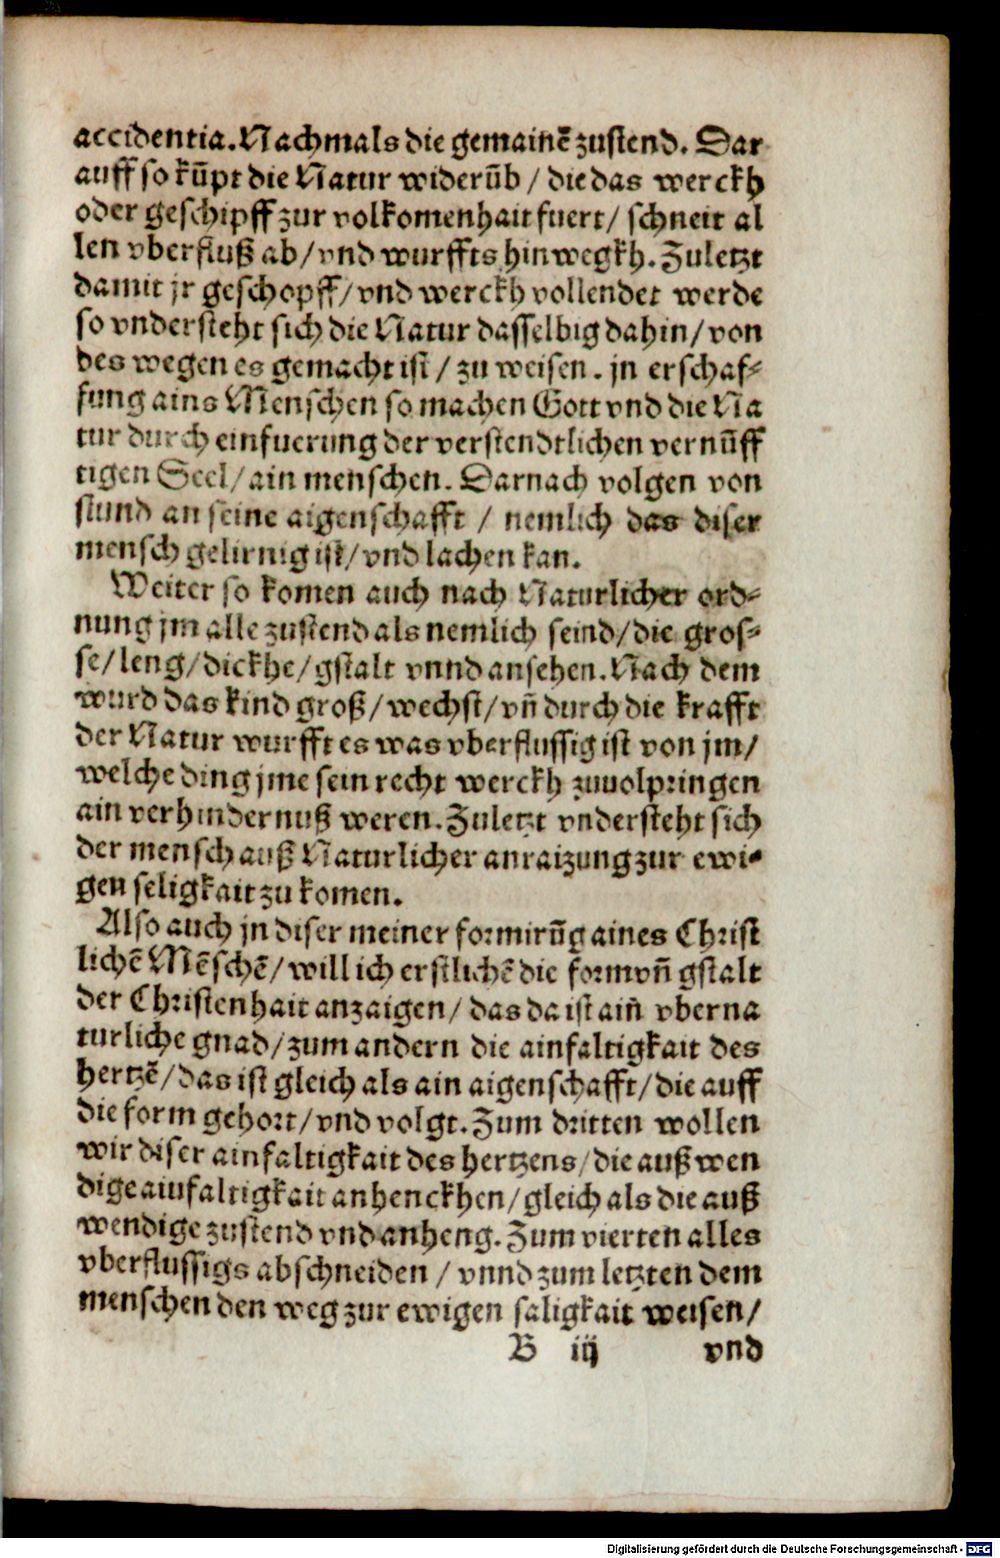 accidentia. Nachmals die gemainē zustend. Dar
auff so kūpt die Natur widerūb / die das werckh
oder geschipff zur volkomenhait fuert / schneit al
len vberfluß ab / vnd wurffts hinwegkh. Zuletzt
damit jr geschopff / vnd werckh vollendet werde
so vndersteht sich die Natur dasselbig dahin / von
des wegen es gemacht ist / zu weisen. jn erschaf⸗
fung ains Menschen so machen Gott vnd die Na
tur durch einfuerung der verstendtlichen vernūff
tigen Seel / ain menschen. Darnach volgen von
stund an seine aigenschafft / nemlich das diser
mensch gelirnig ist / vnd lachen kan.
Weiter so komen auch nach Naturlicher ord⸗
nung jm alle zustend als nemlich seind / die gros⸗
se / leng / dickhe / gstalt vnnd ansehen. Nach dem
wurd das kind groß / wechst / vn̄ durch die krafft
der Natur wurfft es was vberflussig ist von jm /
welche ding jme sein recht werckh zuuolpringen
ain verhindernuß weren. Zuletzt vndersteht sich
der mensch auß Naturlicher anraizung zur ewi⸗
gen seligkait zu komen.
Also auch jn diser meiner formirūg aines Christ
lichē Mēschē / will ich erstlichē die form vn̄ gstalt
der Christenhait anzaigen / das da ist ain̄ vberna
turliche gnad / zum andern die ainfaltigkait des
hertzē / das ist gleich als ain aigenschafft / die auff
die form gehort / vnd volgt. Zum dritten wollen
wir diser ainfaltigkait des hertzens / die außwen
dige ainfaltigkait anhenckhen / gleich als die auß
wendige zustend vnd anheng. Zum vierten alles
vberflussigs abschneiden / vnnd zum letzten dem
menschen den weg zur ewigen saligkait weisen /
B iij vnd
Digitalisierung gefördert durch die Deutsche Forschungsgemeinschaft - DFG